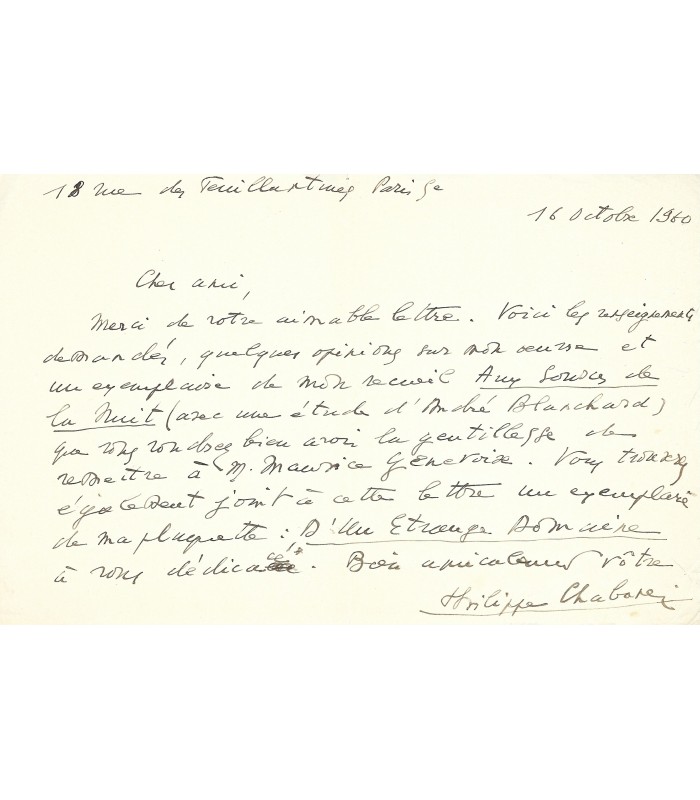 18 rue des Feuillantines Paris 5e
16 Octobre 1960
Cher ami,
Merci de votre aimable lettre. Voici les renseignements
demandés, quelques opinions sur mon œuvre et
un exemplaire de mon recueil Aux Sources de
la Nuit (avec une étude d'André Blanchard)
que vous voudrez bien avoir la gentillesse de
remettre à M. Maurice Genevoix. Vous trouverez
également joint à cette lettre un exemplaire
de ma plaquette : D'Un Etrange Domaine
à vous dédicacé. Bien amicalement vôtre
Philippe Chabaneix